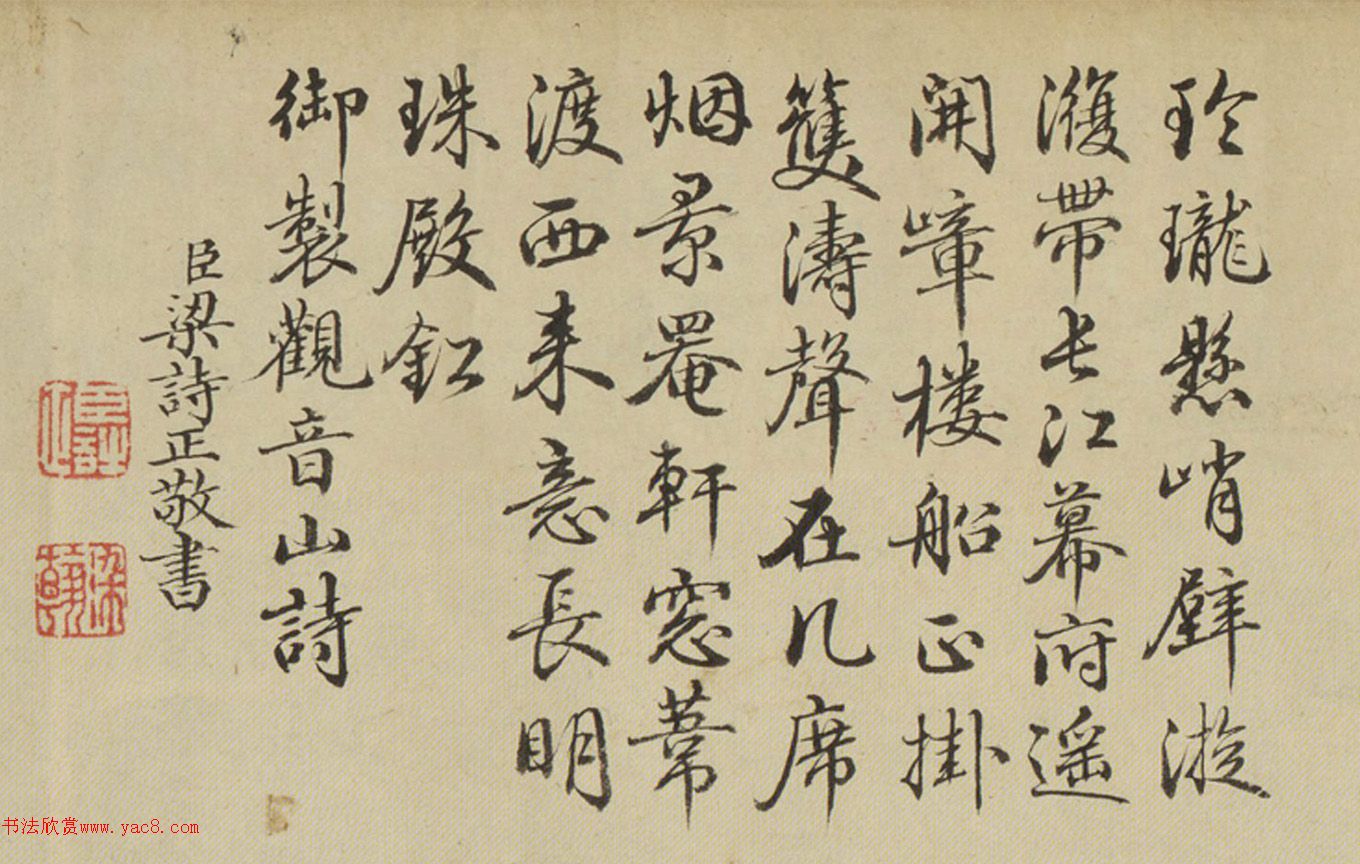 玲瓏懸峭壁漩
濩帶長江幕府遥
開嶂楼船正掛
䉶濤聲在几席
烟景罨軒窓葦
渡西来意長明
珠殿釭
御製觀音山詩
臣梁詩正敬書
书法欣赏www.yac8.com